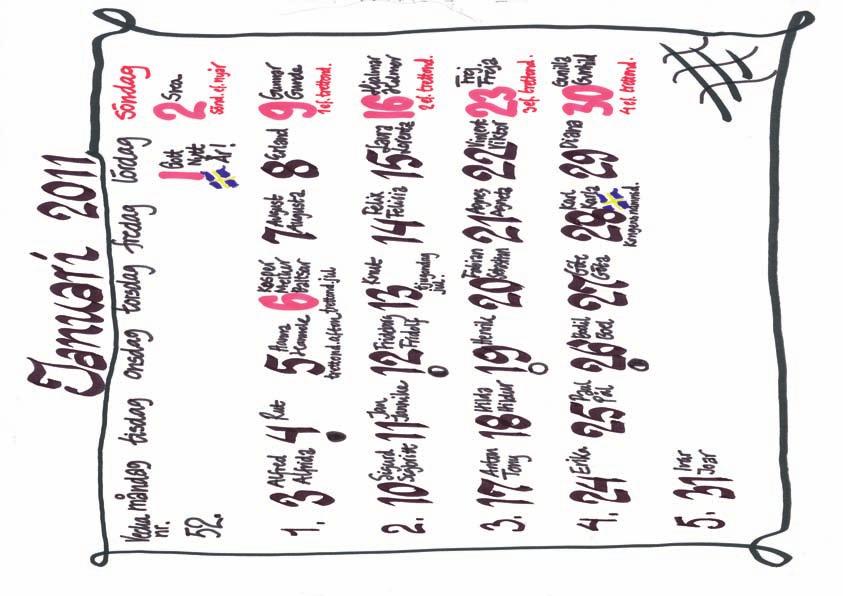 Januari 2011
Vecka nr. måndag tisdag onsdag torsdag fredag lördag söndag
52.
1 Gott Nytt År!
2 Svea
Sönd. e. nyår
1.
3 Alfred Alfrida
4 Rut
5 Hanna Hannele
trettond.afton
6 Kasper Melker Baltsar
trettond.jul
7 August Augusta
8 Erland
9 Gunnar Gunder
1 e. trettond.
2.
10 Sigurd Sigbritt
11 Jan Jannike
12 Frideborg Fridolf
13 Knut
tjugondag jul!
14 Felix Felicia
15 Laura Lorentz
16 Hjalmar Helmer
2 e. trettond.
3.
17 Anton Tony
18 Hilda Hildur
19 Henrik
20 Fabian Sebastian
21 Agnes Agneta
22 Vincent Viktor
23 Frej Freja
3 e. trettond.
4.
24 Erika
25 Paul Pål
26 Bodil Boel
27 Göte Göta
28 Karl Karla
Kungens namnsd.
29 Diana
30 Gunilla Gunhild
4 e. trettond.
5.
31 Ivar Joar